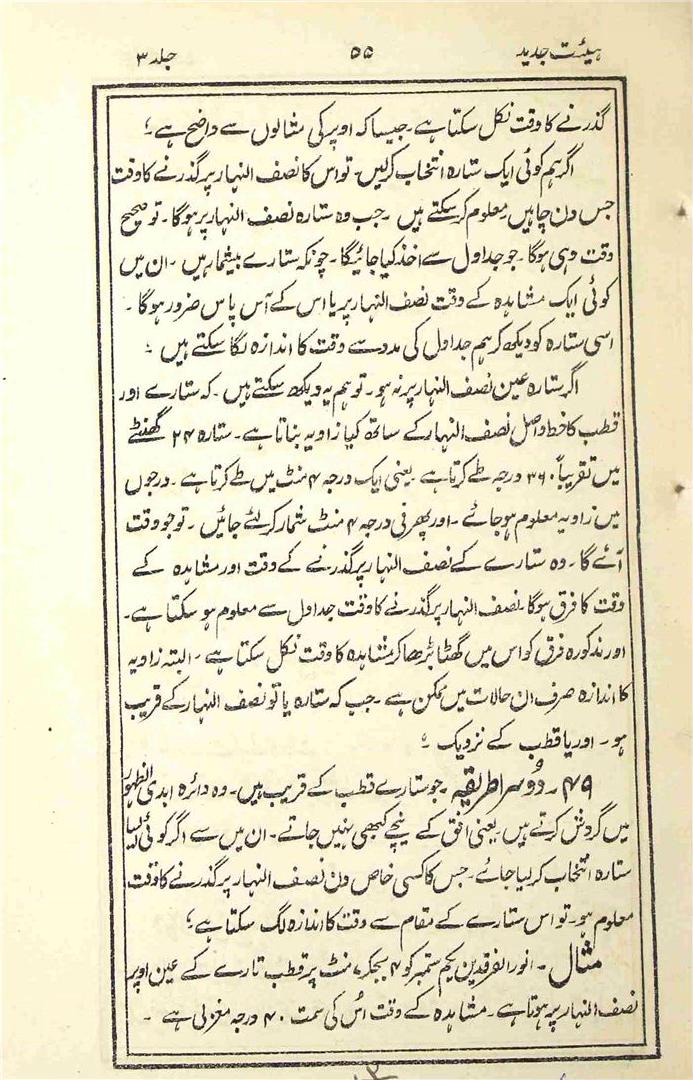 ہیئت جدید ۵۵ جلد ۳
گذرنے کا وقت نکل سکتا ہے۔ جیسا کہ اوپر کی مثالوں سے واضح ہے ؛
اگر ہم کوئی ایک ستارہ انتخاب کرلیں۔ تو اس کا نصف النہار پر گذرنے کا وقت
جس دن چاہیں معلوم کر سکتے ہیں ۔ جب وہ ستارہ نصف النہار پر ہوگا۔ تو صحیح
وقت وہی ہوگا۔ جو جداول سے اخذ کیا جائیگا۔ چونکہ ستارے بیشمار ہیں ۔ ان میں
کوئی ایک مشاہدہ کے وقت نصف النہار پر یا اس کے آس پاس ضرور ہوگا ۔
اسی ستارہ کو دیکھ کر ہم جداول کی مدد سے وقت کا اندازہ لگا سکتے ہیں ؛
اگر ستارہ عین نصف النہار پر نہ ہو۔ تو ہم یہ دیکھ سکتے ہیں ۔ کہ ستارے اور
قطب کا خط واصل نصف النہار کے ساتھ کیا زاویہ بناتا ہے۔ ستارہ ۲۴ گھنٹے
میں تقریباً ۳۶۰ درجہ طے کرتا ہے۔ یعنی ایک درجہ ۴ منٹ میں طے کرتا ہے ۔ درجوں
میں زاویہ معلوم ہو جائے ۔ اور پھر فی درجہ ۴ منٹ شمار کرلئے جائیں ۔ تو جو وقت
آئے گا۔ وہ ستارے کے نصف النہار پر گذرنے کے وقت اور مشاہدہ کے
وقت کا فرق ہوگا۔ نصف النہار پر گذرنے کا وقت جداول سے معلوم ہو سکتا ہے۔
اور مذکورہ فرق کو اس میں گھٹا بڑھا کر مشاہدہ کا وقت نکل سکتا ہے ۔ البتہ زاویہ
کا اندازہ صرف ان حالات میں ممکن ہے ۔ جب کہ ستارہ یا تو نصف النہار کے قریب
ہو ۔ اور یا قطب کے نزدیک ؛
۴۹ ۔ دُوسرا طریقہ ۔ جو ستارے قطب کے قریب ہیں۔ وہ دائرہ ابدی الظہور
میں گردش کرتے ہیں۔ یعنی افق کے نیچے کبھی نہیں جاتے ۔ ان میں سے اگر کوئی ایسا
ستارہ انتخاب کر لیا جائے۔ جس کا کسی خاص دن نصف النہار پر گذرنے کا وقت
معلوم ہو۔ تو اس ستارے کے مقام سے وقت کا اندازہ لگ سکتا ہے ؛
مثال ۔ انور الفرقدین یکم ستمبر کو ۴ بجکر منٹ پر قطب تارے کے عین اوپر
نصف النہار پر ہوتا ہے ۔ مشاہدہ کے وقت اُس کی سمت ۴۰ درجہ مغربی ہے ۔